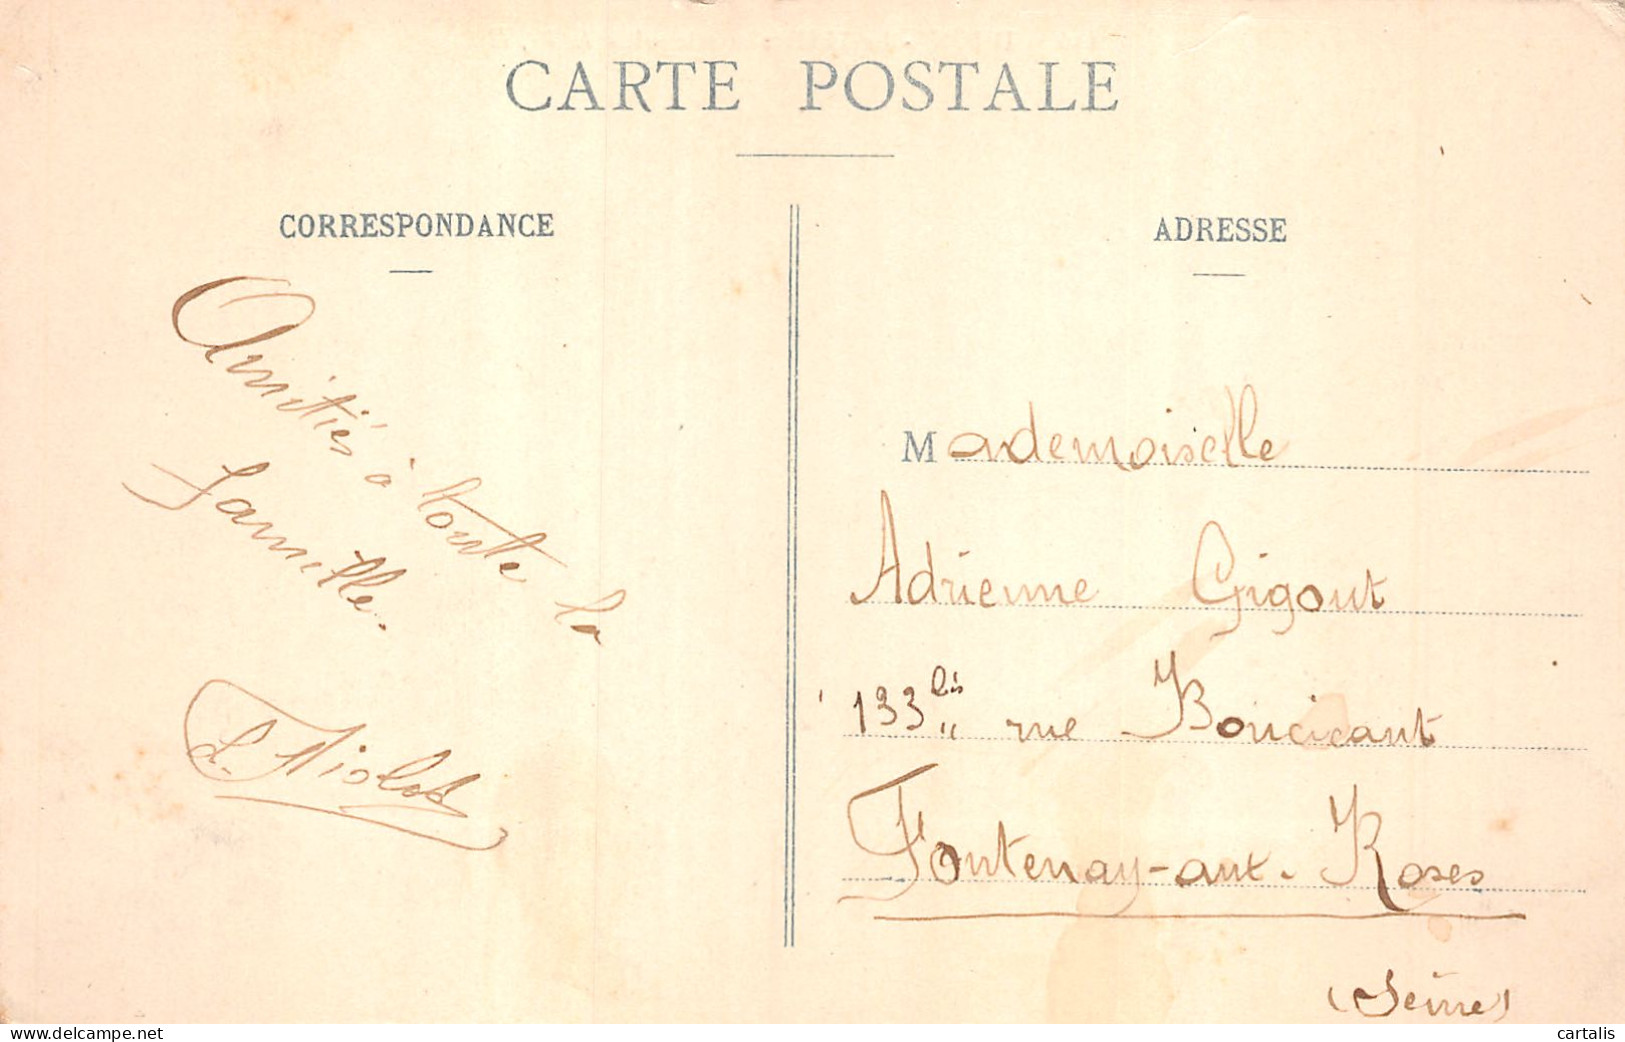 CARTE POSTALE
CORRESPONDANCE
Amitiés à toute la
famille.
ADRESSE
Mademoiselle
Adrienne Gigout
133 bis rue Boucicaut
Fontenay-aux-Roses
(Seine)
cartalis